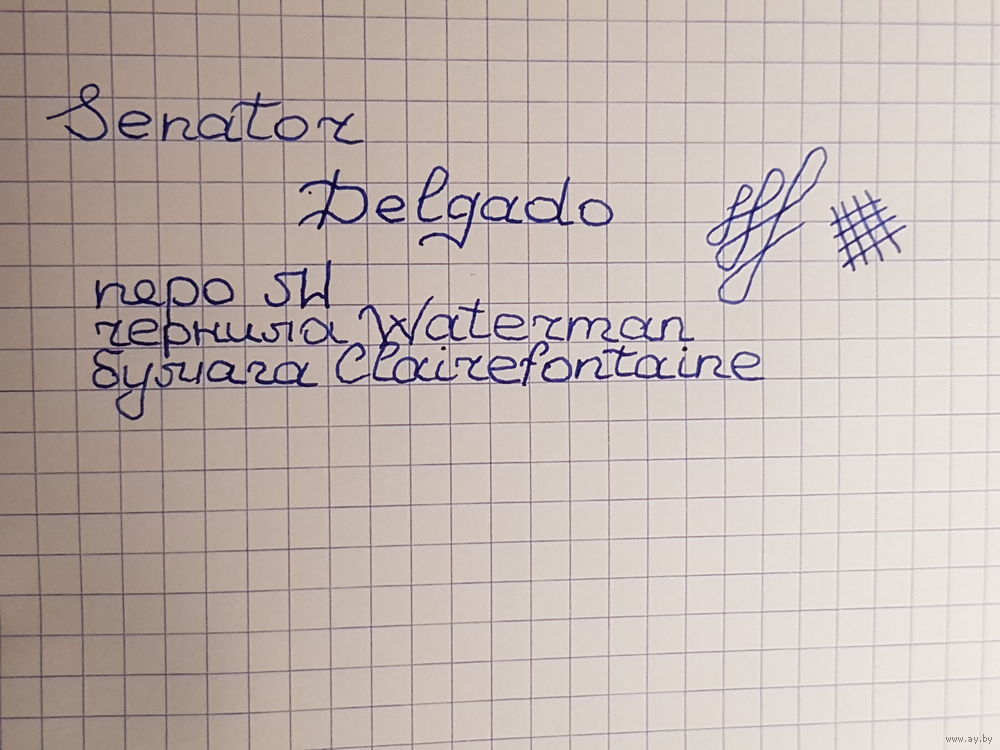 Senator
Delgado
перо 5И
чернила Waterman
бумага Clairefontaine
www.ay.by